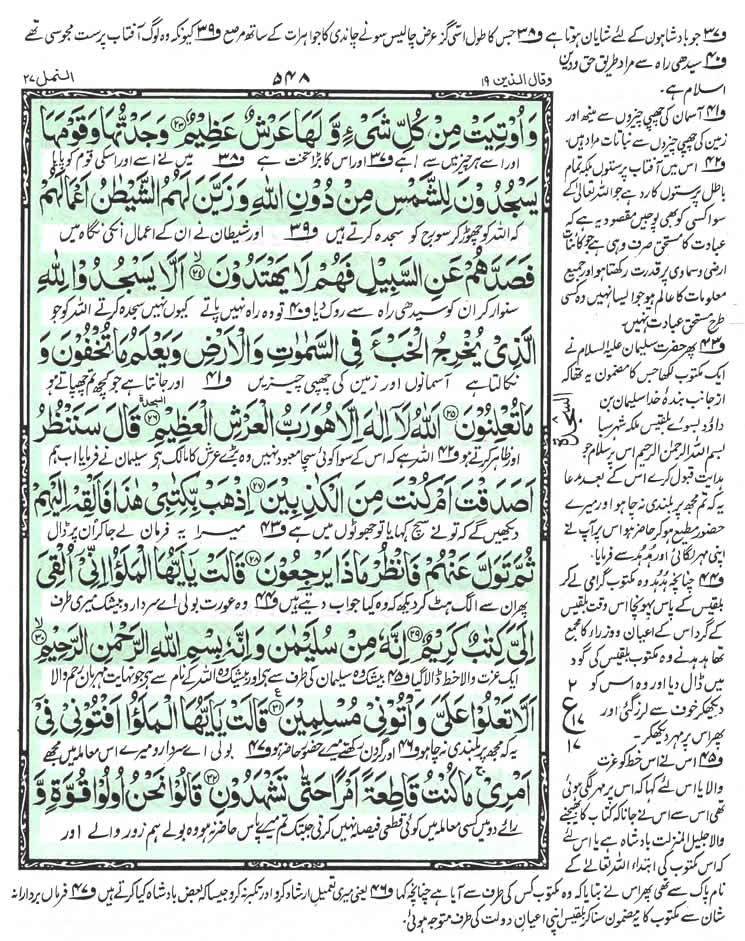 و۳۷ جو بادشاہوں کے لئے شایان ہوتا ہے و۳۸ جس کا طول اسی گز عرض چالیس سونے چاندی کا جواہرات کے ساتھ مرصع و۳۹ کیونکہ وہ لوگ آفتاب پرست مجوسی تھے
و۴۰ سیدھی راہ سے مراد طریق حق و دین
اسلام ہے۔
وقال الذین ۱۹
۵۴۸
النمل ۲۷
وَاُوْتِيَتْ مِنْ كُلِّ شَیْءٍ وَّ لَهَا عَرْشٌ عَظِيْمٌ ﴿۲۳﴾ وَجَدْتُّهَا وَقَوْمَهَا
اور اسے ہر چیز میں سے ملا ہے و۳۷ اور اس کا بڑا تخت ہے و۳۸ میں نے اسے اور اسکی قوم کو پایا
يَسْجُدُوْنَ لِلشَّمْسِ مِنْ دُوْنِ اللّٰهِ وَ زَيَّنَ لَهُمُ الشَّيْطٰنُ اَعْمَالَهُمْ
کہ اللہ کو چھوڑ کر سورج کو سجدہ کرتے ہیں و۳۹ اور شیطان نے ان کے اعمال انکی نگاہ میں
فَصَدَّهُمْ عَنِ السَّبِيْلِ فَهُمْ لَا يَهْتَدُوْنَ ﴿۲۴﴾ اَلَّا يَسْجُدُوْا لِلّٰهِ
سنوار کر ان کو سیدھی راہ سے روک دیا و۴۰ تو وہ راہ نہیں پاتے کیوں نہیں سجدہ کرتے اللہ کو جو
الَّذِیْ يُخْرِجُ الْخَبْءَ فِی السَّمٰوٰتِ وَالْاَرْضِ وَيَعْلَمُ مَا تُخْفُوْنَ وَ
نکالتا ہے آسمانوں اور زمین کی چھپی چیزیں و۴۱ اور جانتا ہے جو کچھ تم چھپاتے ہو
مَا تُعْلِنُوْنَ ﴿۲۵﴾ اَللّٰهُ لَا اِلٰهَ اِلَّا هُوَ رَبُّ الْعَرْشِ الْعَظِيْمِ ﴿۲۶﴾ السجدة قَالَ سَنَنْظُرُ
اور ظاہر کرتے ہو و۴۲ اللہ ہے کہ اس کے سوا کوئی سچا معبود نہیں وہ بڑے عرش کا مالک ہی سلیمان نے فرمایا اب ہم
اَصَدَقْتَ اَمْ كُنْتَ مِنَ الْكٰذِبِيْنَ ﴿۲۷﴾ اِذْهَبْ بِّكِتٰبِیْ هٰذَا فَاَلْقِهْ اِلَيْهِمْ
دیکھیں گے کہ تو نے سچ کہا یا تو جھوٹوں میں ہے و۴۳ میرا یہ فرمان لے جا کر ان پر ڈال
ثُمَّ تَوَلَّ عَنْهُمْ فَانْظُرْ مَاذَا يَرْجِعُوْنَ ﴿۲۸﴾ قَالَتْ يٰٓاَيُّهَا الْمَلَؤُا اِنِّیْ اُلْقِیَ
پھر ان سے الگ ہٹ کر دیکھ کہ وہ کیا جواب دیتے ہیں و۴۴ وہ عورت بولی اے سردارو بیشک میری طرف
اِلَیَّ كِتٰبٌ كَرِيْمٌ ﴿۲۹﴾ اِنَّهٗ مِنْ سُلَيْمٰنَ وَ اِنَّهٗ بِسْمِ اللّٰهِ الرَّحْمٰنِ الرَّحِيْمِ ﴿۳۰﴾
ایک عزت والا خط ڈالا گیا و۴۵ بیشک وہ سلیمان کی طرف سے ہے اور بیشک وہ اللہ کے نام سے ہے جو نہایت مہربان رحم والا
اَلَّا تَعْلُوْا عَلَیَّ وَ اْتُوْنِیْ مُسْلِمِيْنَ ﴿۳۱﴾ قَالَتْ يٰٓاَيُّهَا الْمَلَؤُا اَفْتُوْنِیْ فِیْ
یہ کہ مجھ پر بلندی نہ چاہو و۴۶ اور گردن رکھتے میرے حضور حاضر ہو و۴۷ بولی اے سردارو میرے اس معاملہ میں مجھے
اَمْرِیْ مَا كُنْتُ قَاطِعَةً اَمْرًا حَتّٰی تَشْهَدُوْنِ ﴿۳۲﴾ قَالُوْا نَحْنُ اُولُوْا قُوَّةٍ وَّ
رائے دو میں کسی معاملہ میں کوئی قطعی فیصلہ نہیں کرتی جب تک تم میرے پاس حاضر نہ ہو وہ بولے ہم زور والے اور
و۴۱ آسمان کی چھپی چیزوں سے مینھ اور
زمین کی چھپی چیزوں سے نباتات مراد ہیں۔
و۴۲ اس میں آفتاب پرستوں بلکہ تمام
باطل پرستوں کا رد ہے جو اللہ تعالیٰ کے
سوا کسی کو بھی پوجیں مقصود یہ ہے کہ
عبادت کا مستحق صرف وہی ہے جو کائنات
ارضی و سماوی پر قدرت رکھتا ہو اور جمیع
معلومات کا عالم ہو جو ایسا نہیں وہ کسی
طرح مستحق عبادت نہیں۔
و۴۳ پھر حضرت سلیمان علیہ السلام نے
ایک مکتوب لکھا جس کا مضمون یہ تھا کہ
از جانب بندۂ خدا سلیمان بن
داؤد بسوئے بلقیس ملکہ شہر سبا
بسم اللہ الرحمٰن الرحیم اس پر سلام جو
ہدایت قبول کرے اس کے بعد مدعا
یہ کہ تم مجھ پر بلندی نہ چاہو اور میرے
حضور مطیع ہو کر حاضر ہو اس پر آپ نے
اپنی مہر لگائی اور ہُدہُد سے فرمایا۔
و۴۴ چنانچہ ہُدہُد وہ مکتوب گرامی لے کر
بلقیس کے پاس پہونچا اس وقت بلقیس
کے گرد اس کے اعیان و وزراء کا مجمع
تھا ہدہد نے وہ مکتوب بلقیس کی گود
میں ڈال دیا اور وہ اس کو
دیکھ کر خوف سے لرز گئی اور
پھر اس پر مہر دیکھ کر۔
و۴۵ اس نے اس خط کو عزت
والا یا اس لئے کہا کہ اس پر مہر لگی ہوئی
تھی اس سے اس نے جانا کہ کتاب کا بھیجنے
والا جلیل المنزلت بادشاہ ہے یا اس لئے
کہ اس مکتوب کی ابتداء اللہ تعالیٰ کے
السجدة
۲
ع
۱۷
۱۷
نام پاک سے تھی پھر اس نے بتایا کہ وہ مکتوب کس کی طرف سے آیا ہے چنانچہ کہا و۴۶ یعنی میری تعمیل ارشاد کرو اور تکبر نہ کرو جیسا کہ بعض بادشاہ کیا کرتے ہیں و۴۷ فرماں بردارانہ
شان سے مکتوب کا یہ مضمون سنا کر بلقیس اپنی اعیان دولت کی طرف متوجہ ہوئی۔